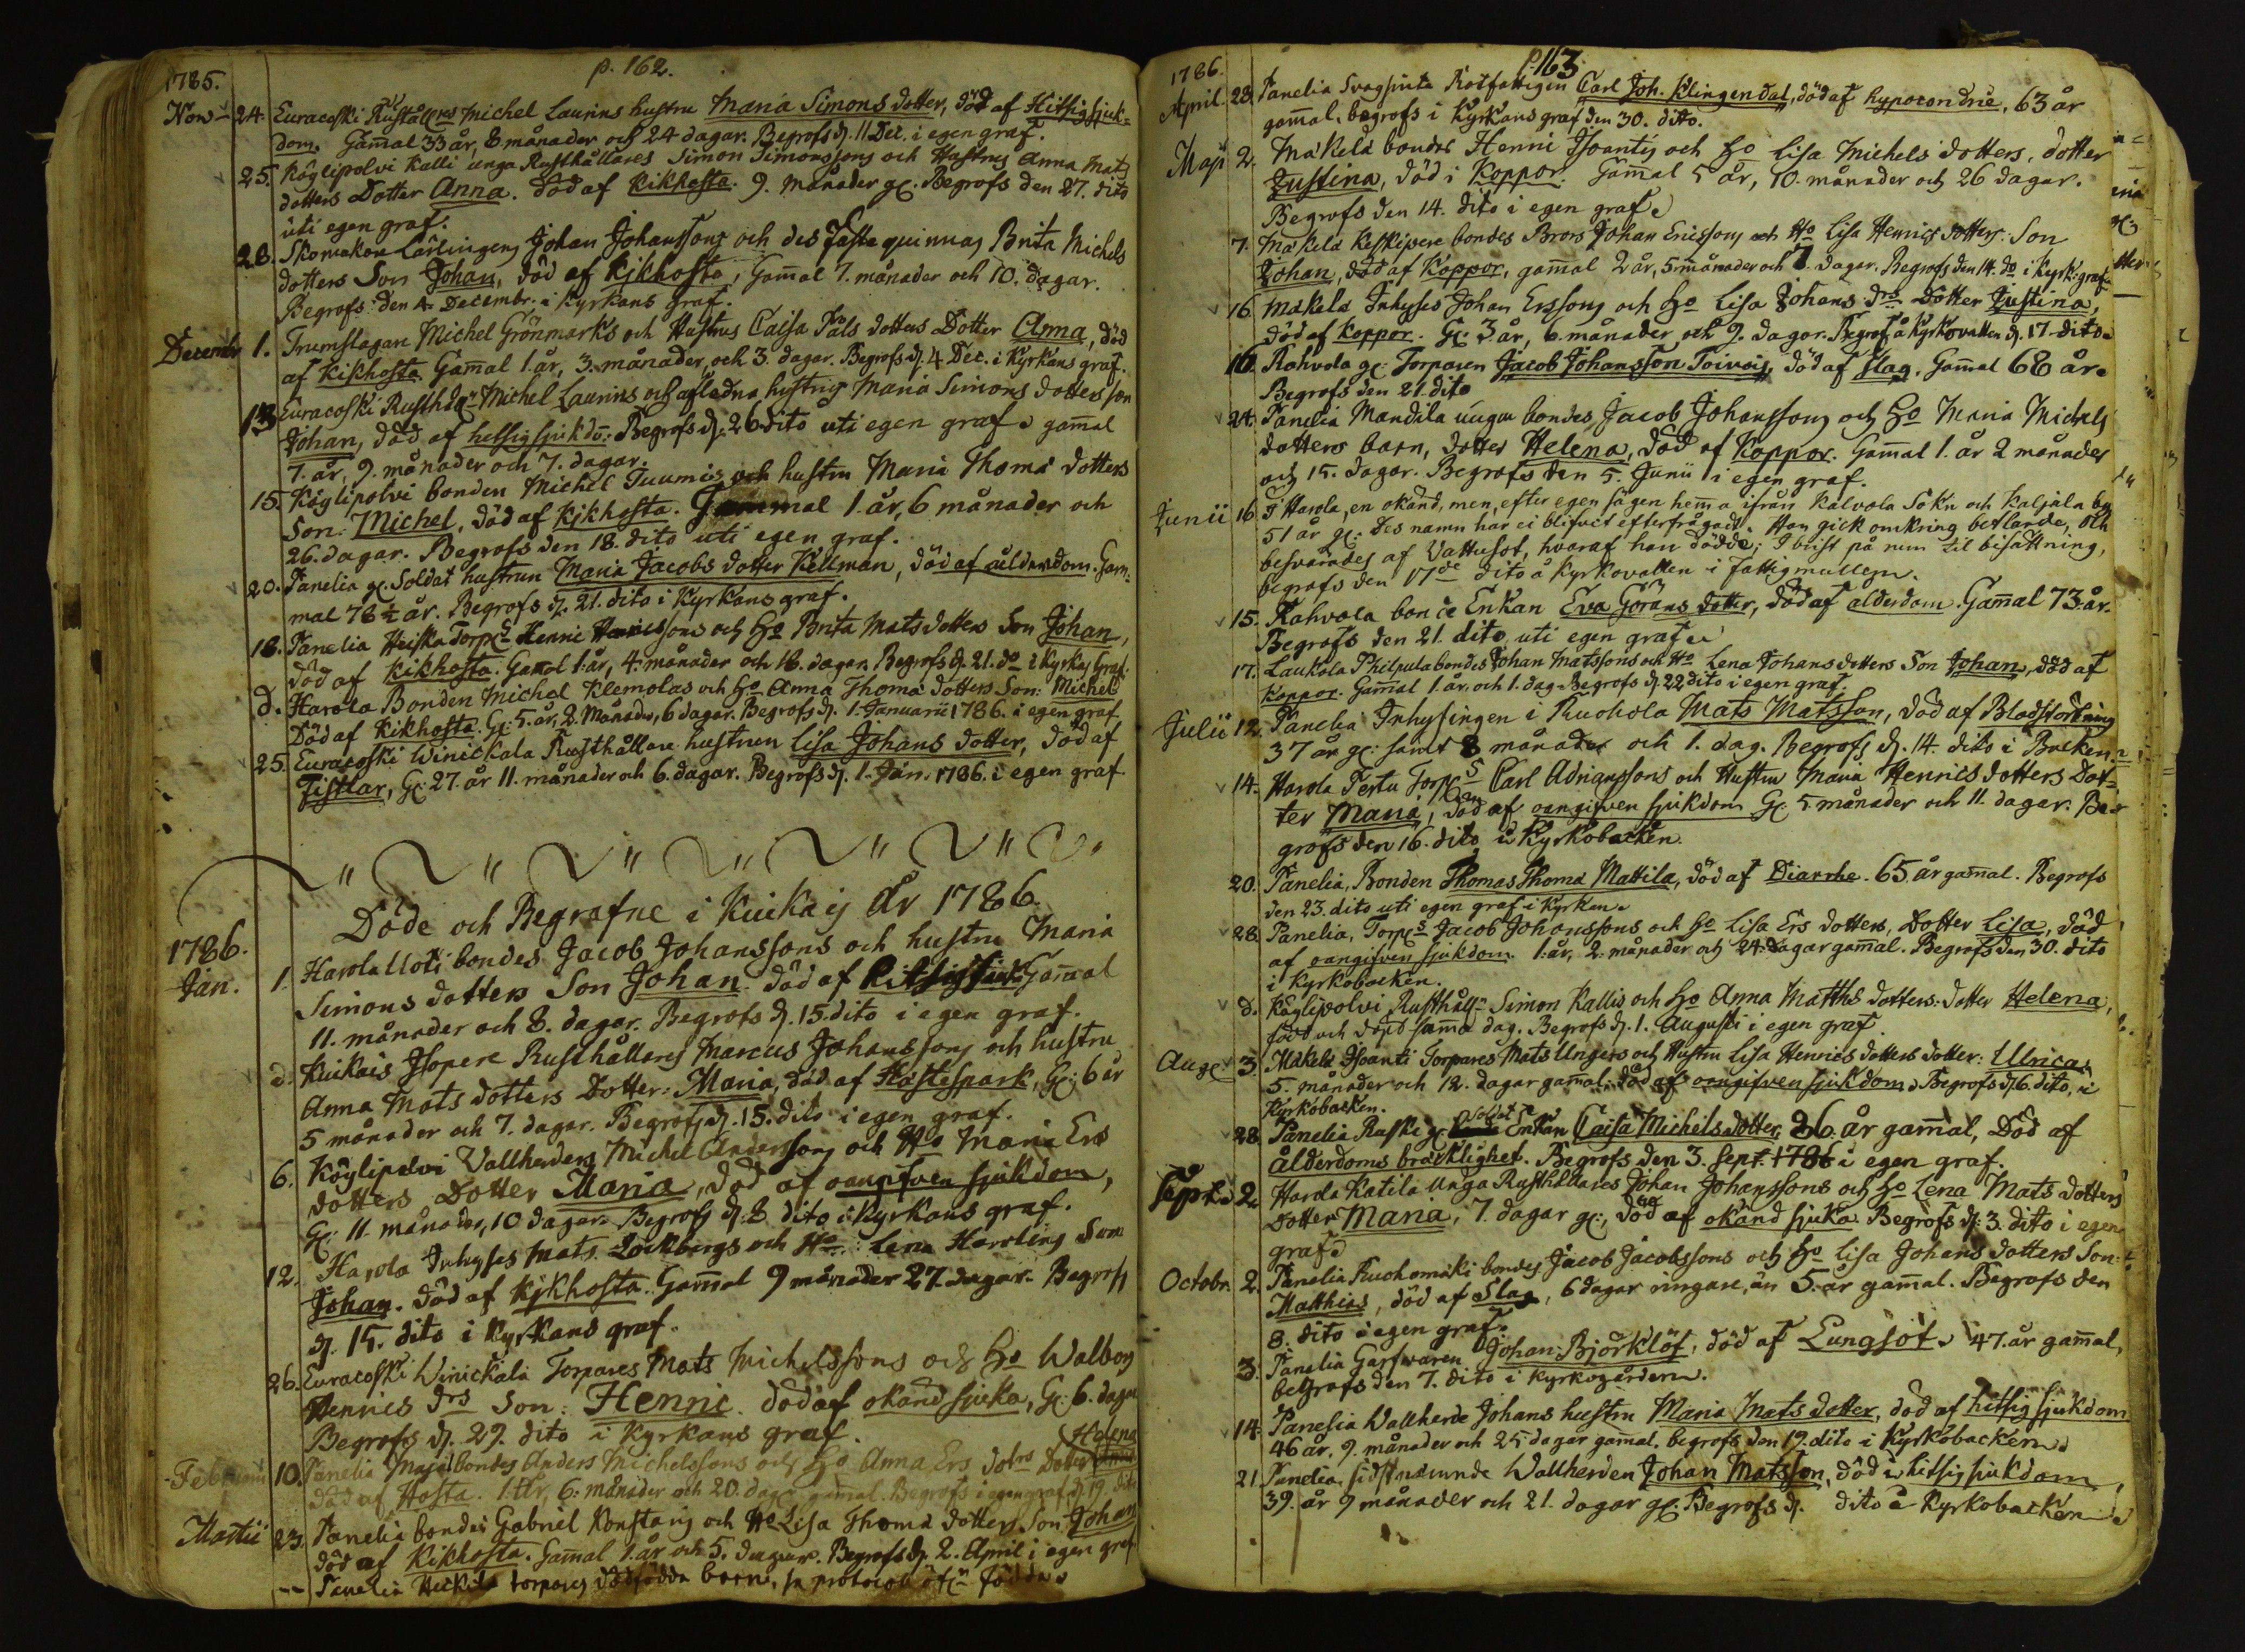 p. 162.
1785.
Nov. 24. Euracoski Rusthållres Michel Laurins hustru Maria Simons dotter, död af Hitsig sjuk-
dom. Gam̄al 33 år, 8 månader och 24 dagar. Begrofs d. 11 Dec. i egen graf.
25. Köglipolvi Kalli unga Rusthållares Simon Simonssons och Hustrus Anna Mats
dotters Dotter Anna. död af kikhosta. 9. månader g. Begrofs den 27. dito
uti egen graf.
28. Skomakare Lärlingens Johan Johanssons och des Fästequinnas Brita Michels
dotters Son Johan, död af kikhosta, Gam̄al 7. månader och 10. dagar.
Begrofs den 4. Decembr. i Kyrkans graf.
Decembr 1. Trumslagan Michel Grönmarks och Hustrus Caisa Påls dotters Dotter Anna, död
af Kikhosta Gam̄al 1. år, 3. månader, och 3. dagar. Begrofs d. 4 Dec. i Kyrkans graf.
13 Euracoski Rusthål. Michel Laurins och afledna hustrus Maria Simons dotters son
Johan, död af hetsig sjukdō: Begrofs d. 26 dito uti egen graf gam̄al
7. år, 9. månader och 7. dagar.
15. Köglipolvi bonden Michel Tuumis och hustru Maria Thomæ dotters
Son: Michel, död af kjkhosta. Gammal 1. år, 6 månader och
26. dagar. Begrofs den 18. dito uti egen graf.
20. Panelia g. Soldat hustrun Maria Jacobs dotter Kellman, död af ålderdom. Gam-
mal 78 ½ år. Begrofs d. 21. dito i Kyrkans graf.
18. Panelia Heiska Torp. Henric Henricssons och Ho Brita Mats dotters Son Johan,
död af kikhosta. Gam̄al 1. år, 4. månader och 18. dagar. Begrofs d. 21. do i Kyrkans Graf.
d. Harola Bonden Michel Klemolas och Ho Anna Thomæ dotters Son: Michel
Död af Kikhosta. G: 5. år, 2. Månader, 6 dagar. Begrofs d. 1. Januarii 1786. i egen graf.
25. Euracoski Winickala Rusthållare hustrun Lisa Johans dotter, död af
Fistlar, G: 27. år 11. månader och 6. dagar. Begrofs d. 1. Jan. 1786. i egen graf
Döde och Begrafne i Kiukais År 1786.
1786.
Jan. 1. Harola Uoti bondes Jacob Johanssons och hustru Maria
Simons dotters Son Johan. död af Hitsig siuk: Gam̄al
11. månader och 8. dagar. Begrofs d. 15. dito i egen graf.
d. Kiukais Isopere Rusthållares Marcus Johanssons och hustru
Anna Mats dotters Dotter: Maria, död af Hästespark, G: 6 år
5 månader och 7. dagar. Begrofs d. 15. dito i egen graf.
6. Köglipolvi Vallherdens Michel Anderssons och Ho Maria Ers
dotters Dotter Maria, död af oangifven sjukdom,
G: 11. månader, 10 dagar. Begrofs d. 8 dito i Kyrkans graf.
12. Harola Inhyses Mats Lockbergs och Ho: Lena Son
Johan. död af kjkhosta. Gam̄al 9 månader 27. dagar. Begrofs
d. 15. dito i Kyrkans graf.
26. Euracoski Winickala Torpares Mats Michelssons och Ho Walborg
Henrics drs Son: Henric. död af okänd sjuka, G: 6. dagar
Begrofs d. 29. dito i Kyrkans graf.
Helena
Februarii 10. Panelia Maja bondes Anders Michelssons och Ho Anna Ers dotrs Dotter
död af Hosta. 1. år, 6. månader och 20. dagar gam̄al. Begrofs i egen graf d. 19. dito
Martii 23. Panelia bondes Gabriel Konstans och Ho Lisa Thomæ dotters Son Johan
död af Kikhosta. Gam̄al 1. år och 5. dagar. Begrofs d. 2. April i egen graf
-- Panelia Heikilä torpares dödfödda barn,
p. 163
1786.
April. 23. Panelia Rotfattigen Carl Joh. Klingendal, död af hypocondrie, 63 år
gam̄al. begrofs i Kyrkans graf den 30. dito.
Maji 2. Mäkelä bondes Henric Isoantis och Ho Lisa Michels dotters, dotter
Justina, död i Koppor. Gam̄al 5 år, 10. månader och 26 dagar.
Begrofs den 14. dito i egen graf
7. Mäkelä Keskipere bondes Brors Johan Ericssons och Ho Lisa Henrics dotters. Son
Johan, död af Koppor, gam̄al 2 år, 5 månader och 7. dagar. Begrofs den 14. do i Kyrk: graf
16. Mäkelä Inhyses Johan Erssons och Ho Lisa Johans drs Dotter Justina,
död af Koppor. G: 3 år, 6. månader och 9. dagar. Begrof å Kyrkovallen d. 17. dito.
10. Rahvola g: Torparen Jacob Johansson Toivois, död af Slag. Gam̄al 68 år.
Begrofs den 21. dito
24. Panelia Mandila unga bondes Jacob Johanssons och Ho Maria Michels
dotters barn, dotter Helena, död af Koppor. Gam̄al 1. år 2 månader
och 15. dagar. Begrofs den 5. Junii i egen graf.
Junii 16. I Harola, en okänd, men, efter egen sägen hem̄a ifrån Kalvola Sokn och Kaljala by
51 år g: Des namn har ei blifvit efterfrågadt. Han gick omkring betlande, och
besvärades af Vattusot, hvaraf han dödde; I brist på rum til bisättning,
begrofs den 17de dito å Kyrkovallen i fattigmullen.
15. Rahvola bonde Enkan Eva Görans dotter, död af ålderdom. Gam̄al 73. år.
Begrofs den 21. dito uti egen graf
17. Laukola Philpula bondes Johan Matssons och Ho Lena Johans dotters Son Johan, död af
Koppor. Gam̄al 1. år. och 1. dag. Begrofs d. 22 dito i egen graf.
Julii 12. Panelia Inhysingen i Ruohola Mats Matsson, död af Blodstörtning
37 år g: samt 8 månader och 1. dag. Begrofs d. 14. dito i Backen.
14. Harola Perttu Torp. Carl Adrianssons och Hustru Maria Henrics dotters Dot-
ter Maria, död af oangifven sjukdom G: 5. månader och 11. dagar. Be-
grofs den 16. dito i Kyrkobacken.
20. Panelia, Bonden Thomas Thomæ Mattila, död af Diarrhe. 65. år gam̄al. Begrofs
den 23. dito uti egen graf i Kyrkan.
28. Panelia, Torp. Jacob Johanssons och Ho Lisa Ers dotters, Dotter Lisa, död
af oangifven sjukdom. 1. år, 2. månader och 24. dagar gam̄al. Begrofs den 30. dito
i Kyrkobacken.
d. Köglipolvi Rusthåll. Simon Kallis och Ho Anna Matths dotters: dotter Helena,
född och död sam̄a dag. Begrofs d. 1. Augusti i egen graf.
Aug. 3. Mäkelä Isoanti Torpares Mats Ungers och Hustru Lisa Henrics dotters dotter: Ulrica
5. månader och 12. dagar gam̄al. död af oangifven sjukdom. Begrofs d. 6. dito, i
Kyrkobacken.
28. Panelia Raski g: Soldat Enkan Caisa Michels dotter, 86. år gam̄al, Död af
Ålderdoms bräcklighet. Begrofs den 3. Sept. 1786 i egen graf.
Sept. 2. Harola Katila Unga Rusthållares Johan Johanssons och Ho Lena Mats dotters
Dotter Maria, 7. dagar g:, död af okänd sjuka. Begrofs d. 3. dito i egen
graf
Octobr. 2. Panelia Ruohomäki bondes Jacob Jacobssons och Ho Lisa Johans dotters Son:
Matthias, död af Slag, 6 dagar ringare, än 5. år gam̄al. Begrofs den
8. dito i egen graf.
3. Panelia Garfvaren Johan Björklöf, död af Lungsot. 47. år gam̄al,
begrofs den 7. dito i Kyrkogården.
14. Panelia Wallherde Johans hustru Maria Mats dotter, död af hitsig sjukdom
46 år, 9. månader och 25 dagar gam̄al. begrofs den 19. dito i Kyrkobacken.
21. Panelia, sidstnämnde Wallherden Johan Matsson, död i hitsig sjukdom,
39. år 9 månader och 21. dagar g: Begrofs d. dito å Kyrkobacken